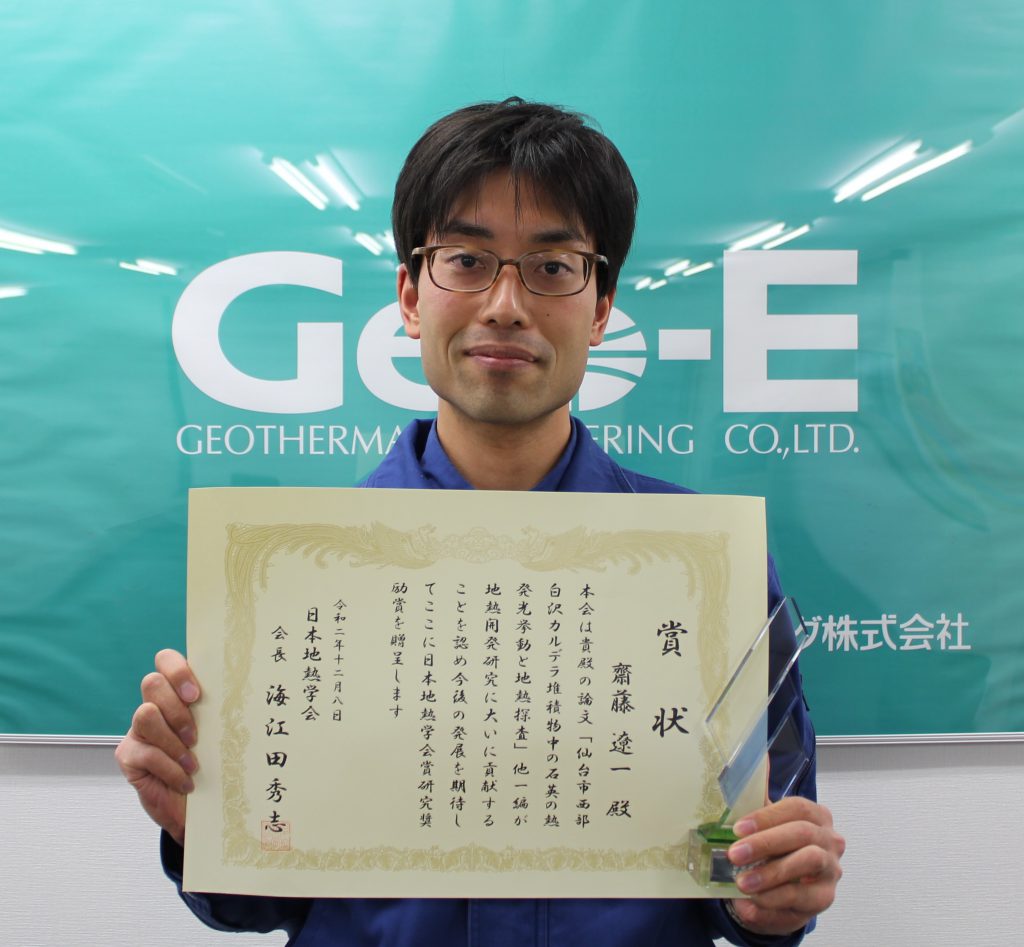 Geo-E
GEOTHERMA ERING CO.,LTD.
グ株式会社
賞状
齋藤 遼一 殿
本会は貴殿の論文「仙台市西部
白沢カルデラ堆積物中の石英の熱
発光挙動と地熱探査」他一編が
地熱開発研究に大いに貢献する
ことを認め今後の発展を期待し
てここに日本地熱学会賞研究奨
励賞を贈呈します
令和二年十二月八日
日本地熱学会
会長 海江田秀志